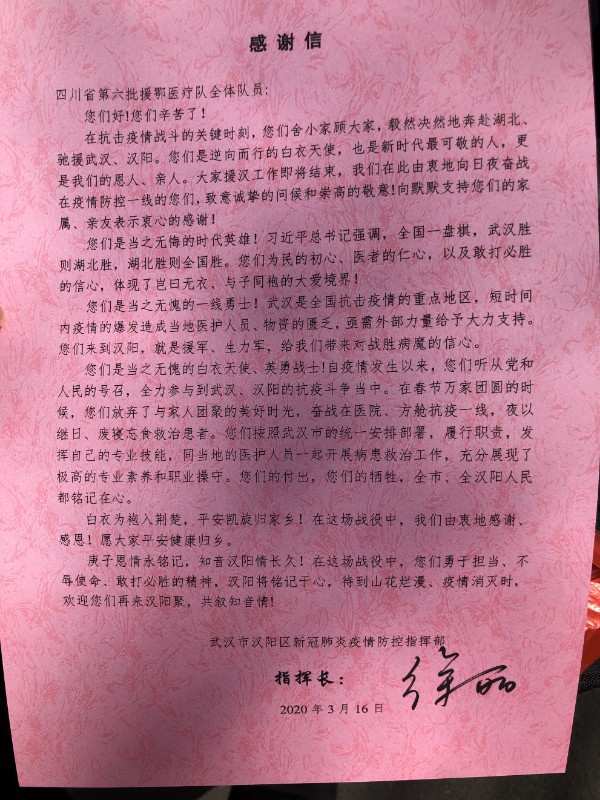 感谢信
四川省第六批援鄂医疗队全体队员:
您们好!您们辛苦了!
在抗击疫情战斗的关键时刻,您们舍小家顾大家,毅然决然地奔赴湖北、
驰援武汉、汉阳。您们是逆向而行的白衣天使,也是新时代最可敬的人,更
是我们的恩人、亲人。大家援汉工作即将结束,我们在此由衷地向日夜奋战
在疫情防控一线的您们,致意诚挚的问候和崇高的敬意!向默默支持您们的家
属、亲友表示衷心的感谢!
您们是当之无悔的时代英雄!习近平总书记强调,全国一盘棋,武汉胜
则湖北胜,湖北胜则全国胜。您们为民的初心、医者的仁心,以及敢打必胜
的信心,体现了岂曰无衣、与子同袍的大爱境界!
您们是当之无愧的一线勇士!武汉是全国抗击疫情的重点地区,短时间
内疫情的爆发造成当地医护人员、物资的匮乏,亟需外部力量给予大力支持。
您们来到汉阳,就是援军、生力军,给我们带来对战胜病魔的信心。
您们是当之无愧的白衣天使、英勇战士!自疫情发生以来,您们听从党和
人民的号召,全力参与到武汉、汉阳的抗疫斗争当中。在春节万家团圆的时
候,您们放弃了与家人团聚的美好时光,奋战在医院、方舱抗疫一线,夜以
继日、废寝忘食救治患者。您们按照武汉市的统一安排部署,履行职责,发
挥自己的专业技能,同当地的医护人员一起开展病患救治工作,充分展现了
极高的专业素养和职业操守。您们的付出,您们的牺牲,全市、全汉阳人民
都铭记在心。
白衣为袍入荆楚,平安凯旋归家乡!在这场战役中,我们由衷地感谢、
感恩!愿大家平安健康归乡。
庚子恩情永铭记,知音汉阳情长久!在这场战役中,您们勇于担当、不
辱使命、敢打必胜的精神,汉阳将铭记于心,待到山花烂漫、疫情消灭时,
欢迎您们再来汉阳聚,共叙知音情!
武汉市汉阳区新冠肺炎疫情防控指挥部
指挥长:
2020年3月16日